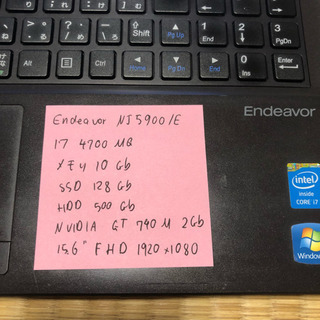 Endeavor NJ5900/E
i7 4700 MQ
メモリ 10 Gb
SSD 128 Gb
HDD 500 Gb
NVIDIA GT 740 M 2Gb
15,6" FHD 1920 x 1080
Endeavor
intel
inside
CORE i7
Windows
Alt
Pg Up
Home
Pg Dn
End
1
2
3
PgDn
0
Ins
Enter